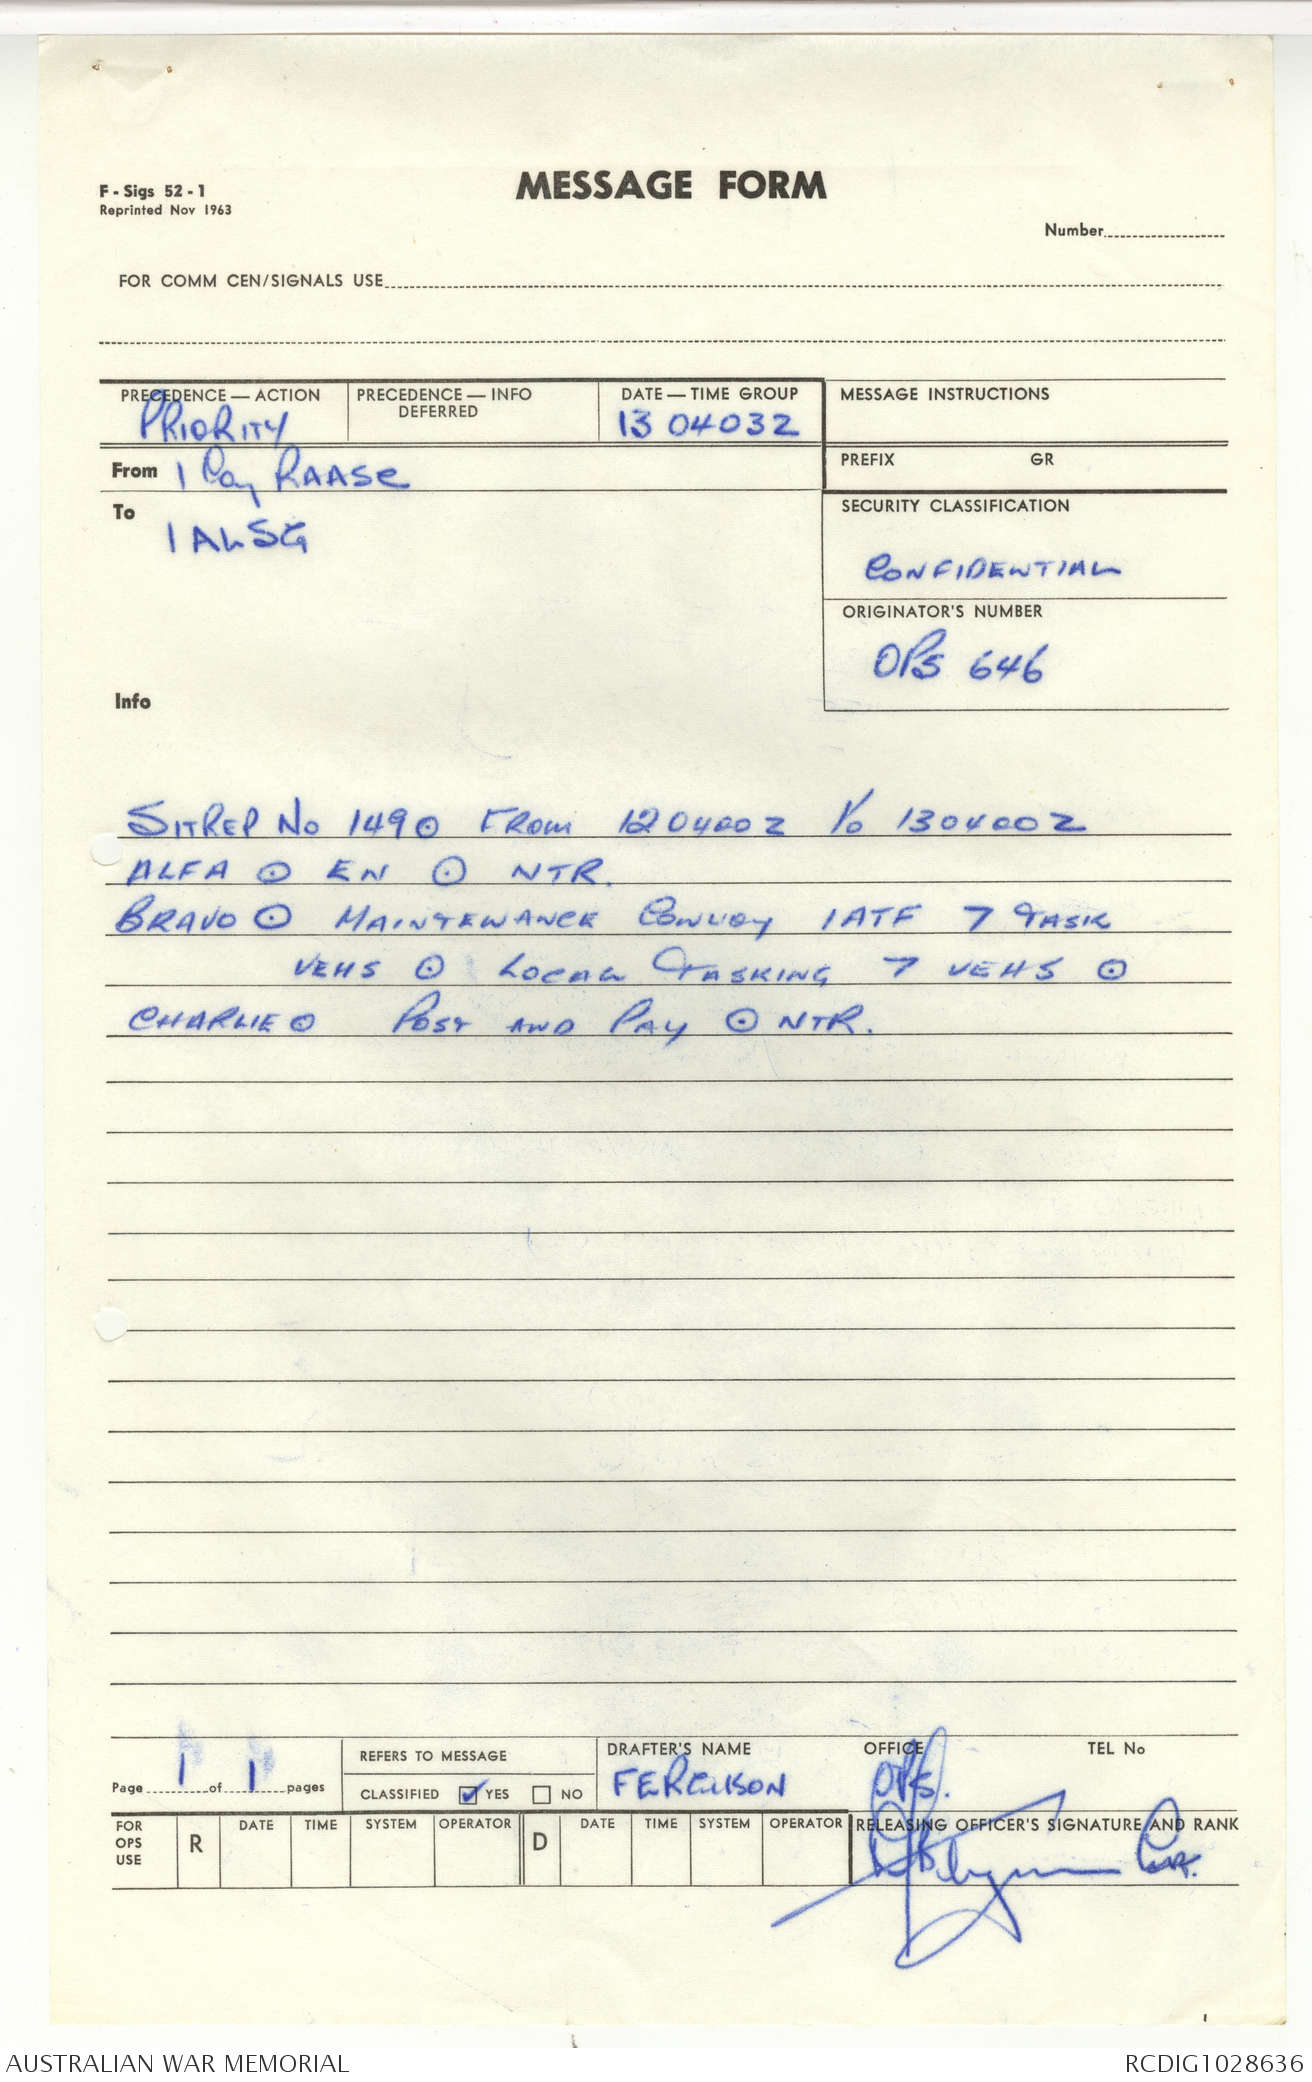 F - Sigs 52 - 1
Reprinted Nov 1963
MESSAGE FORM
Number
FOR COMM CEN/SIGNALS USE
PRECEDENCE — ACTION
PRIORITY
PRECEDENCE — INFO
DEFERRED
DATE — TIME GROUP
130403Z
MESSAGE INSTRUCTIONS
From 1 Coy RAASC
PREFIX GR
To
1 ALSG
SECURITY CLASSIFICATION
CONFIDENTIAL
ORIGINATOR'S NUMBER
OPS 646
Info
SITREP No 149 ⊙ FROM 120400Z To 130400Z
ALFA ⊙ EN ⊙ NTR.
BRAVO ⊙ MAINTENANCE CONVOY 1ATF 7 TASK
VEHS ⊙ LOCAL TASKING 7 VEHS ⊙
CHARLIE ⊙ POST AND PAY ⊙ NTR.
Page 1 of 1 pages
REFERS TO MESSAGE
CLASSIFIED ☑ YES ☐ NO
DRAFTER'S NAME
FERGUSON
OFFICE
OPS.
TEL No
FOR
OPS
USE
R DATE TIME SYSTEM OPERATOR D DATE TIME SYSTEM OPERATOR
RELEASING OFFICER'S SIGNATURE AND RANK
AUSTRALIAN WAR MEMORIAL
RCDIG1028636